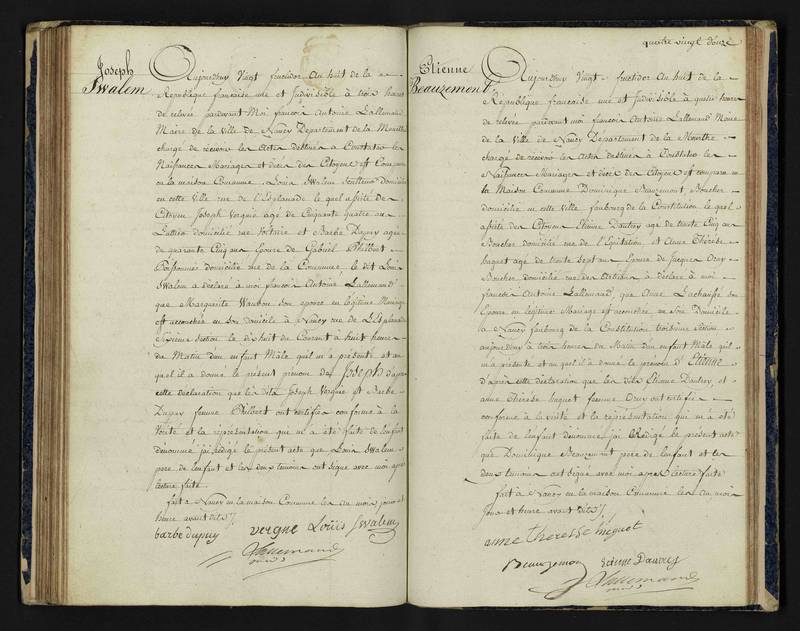 Joseph
Swalem
Aujourdhuy Vingt fructidor An huit de la
République francaise une et Indivisible à trois heures
de relevée pardevant Moi francois Antoine Lallemand
Maire de la Ville de Nancy Département de la Meurthe
chargé de recevoir les Actes destinés a Constater les
Naissances Mariages et décès des Citoyens est Comparu
en la maison Commune Louis Swalem Domicilié
en cette ville rue de l'Esplanade le quel assisté de
Citoyen Joseph Vergne agé de Cinquante quatre ans
Luthier domicilié rue et Barbe Dupuy agée
de quarante Cinq ans Epouse de Gabriel Philbert
Poissonnier domicilié rue de la Commune le dit Louis
Swalem a déclaré a moi francois Antoine Lallemand
que Marguerite Waubon son epouse en légitime Mariage
est accouchée en son domicile à Nancy rue de L'Esplanade
Sixieme section le dix huit de Courant à huit heures
du Matin dun enfant Mâle quil m'a présenté et au
quel il a donné le présent prénom de Joseph d'apres
cette déclaration que les dits Joseph Vergne et Barbe
Dupuy femme Philbert ont certifiés conforme à la
Vérité et la représentation qui m'a été faite de lenfant
dénommé jai rédigé le présent acte que Louis Swalem
pere de lenfant et les deux temoins ont signé avec moi apres
lecture faite
fait a Nancy en la maison Commune les an mois jour et
heure avant dits
barbe dupuy vergne Louis Swalem
Lallemand
quatre vingt douze
Etienne
Beauzemont
Aujourdhuy Vingt fructidor An huit de la
République francaise une et Indivisible à quatre heures
de relevée pardevant moi francois Antoine Lallemand Maire
de la Ville de Nancy Département de la Meurthe
chargé de recevoir les Actes destinés à Constater les
Naissances Mariages et décès des Citoyens est comparu en
la Maison Commune Dominique Beauzemont Boucher
domicilié en cette ville faubourg de la Constitution le quel
assisté des Citoyens Etienne Dautrey agé de trente Cinq ans
Boucher domicilié rue de l'Equitation et Anne Thérèse
huguet agé de trente sept ans Epouse de Jacques Oury
Boucher domicilié rue des Artisans à déclaré à moi
francois Antoine Lallemand que Anne Lachasse son
Epouse en légitime Mariage est accouchée en son Domicile
à Nancy faubourg de la Constitution troisieme section
aujourdhuy à trois heures du Matin dun enfant Mâle quil
m'a présenté et auquel il à donné le prénom d' Etienne
d'après cette déclaration que les dits Etienne Dautrey et
anne Thérèse huguet femme Oury ont certifiés
conforme à la vérité et la représentation qui m'a été
faite de lenfant dénommé jai Rédigé le présent acte
que Dominique Beauzemont père de lenfant et les
deux temoins ont signé avec moi apres lecture faite
fait à Nancy en la maison Commune les an mois
Jour et heure avant dits
anne theresse huguet
Beauzemon etienne Dautrey
Lallemand